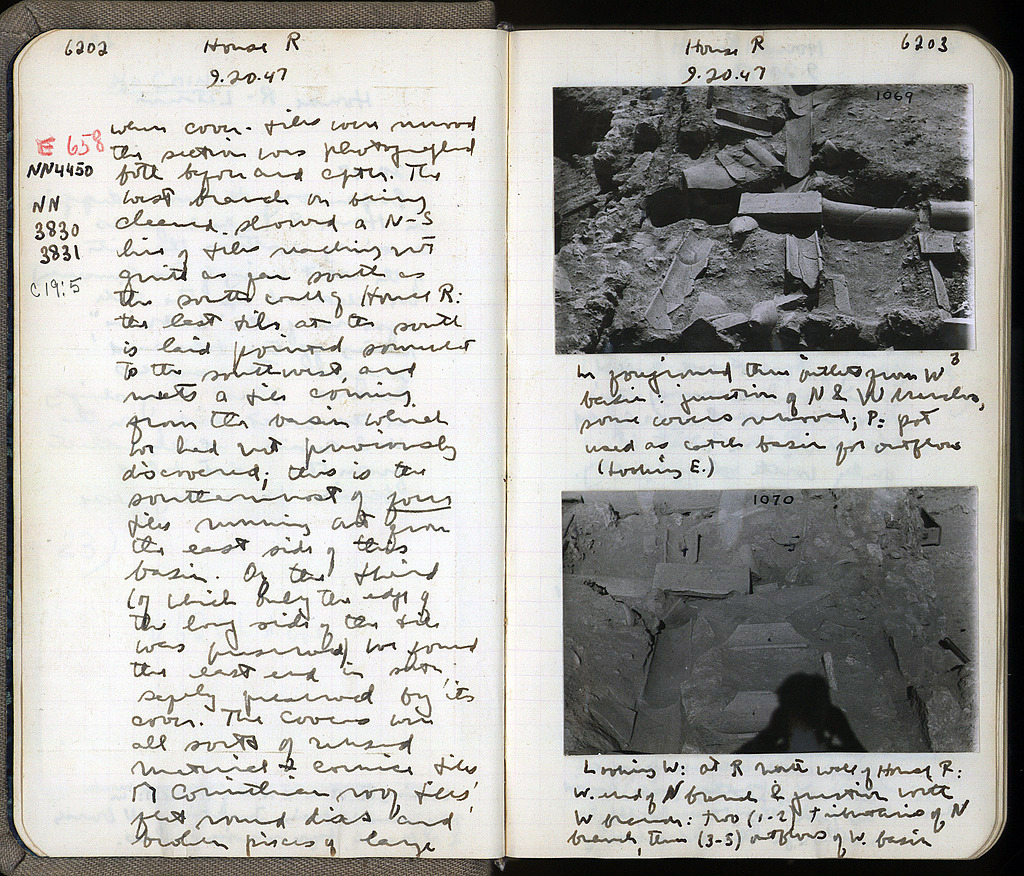 6202 House R
9.20.47
E 658
NN4450
NN
3830
3831
C19:5
when cover-tiles were removed
the section was photographed
both before and after. The
west branch on being
cleaned showed a N-S
line of tiles reaching not
quite as far south as
the south wall of House R:
the last tile at the south
is laid pointed somewhat
to the southwest, and
meets a tile coming
from the basin which
we had not previously
discovered; this is the
southernmost of four
tiles running out from
the east side of this
basin. On the third
(of which only the edge of
the long side of the tile
was preserved) we found
the east end in situ,
safely preserved by its
cover. The covers were
all sorts of reused
material: cornice tiles
Corinthian roof tiles,
flat round discs and
broken pieces of large
House R 6203
9.20.47
1069
In foreground three outlets from W
basin: junction of N & W branches,
some covers removed; P: pot
used as catch basin for outflow
(Looking E.)
1070
Looking W: at R north wall of House R:
W. end of N branch & junction with
W branch: two (1-2) tributaries of N
branch, three (3-5) outflows of W. basin